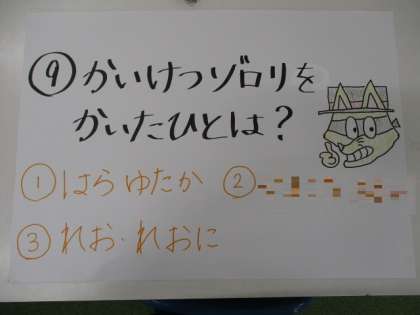 ⑨かいけつゾロリを
かいたひとは？
①はらゆたか ②
③れお・れおに